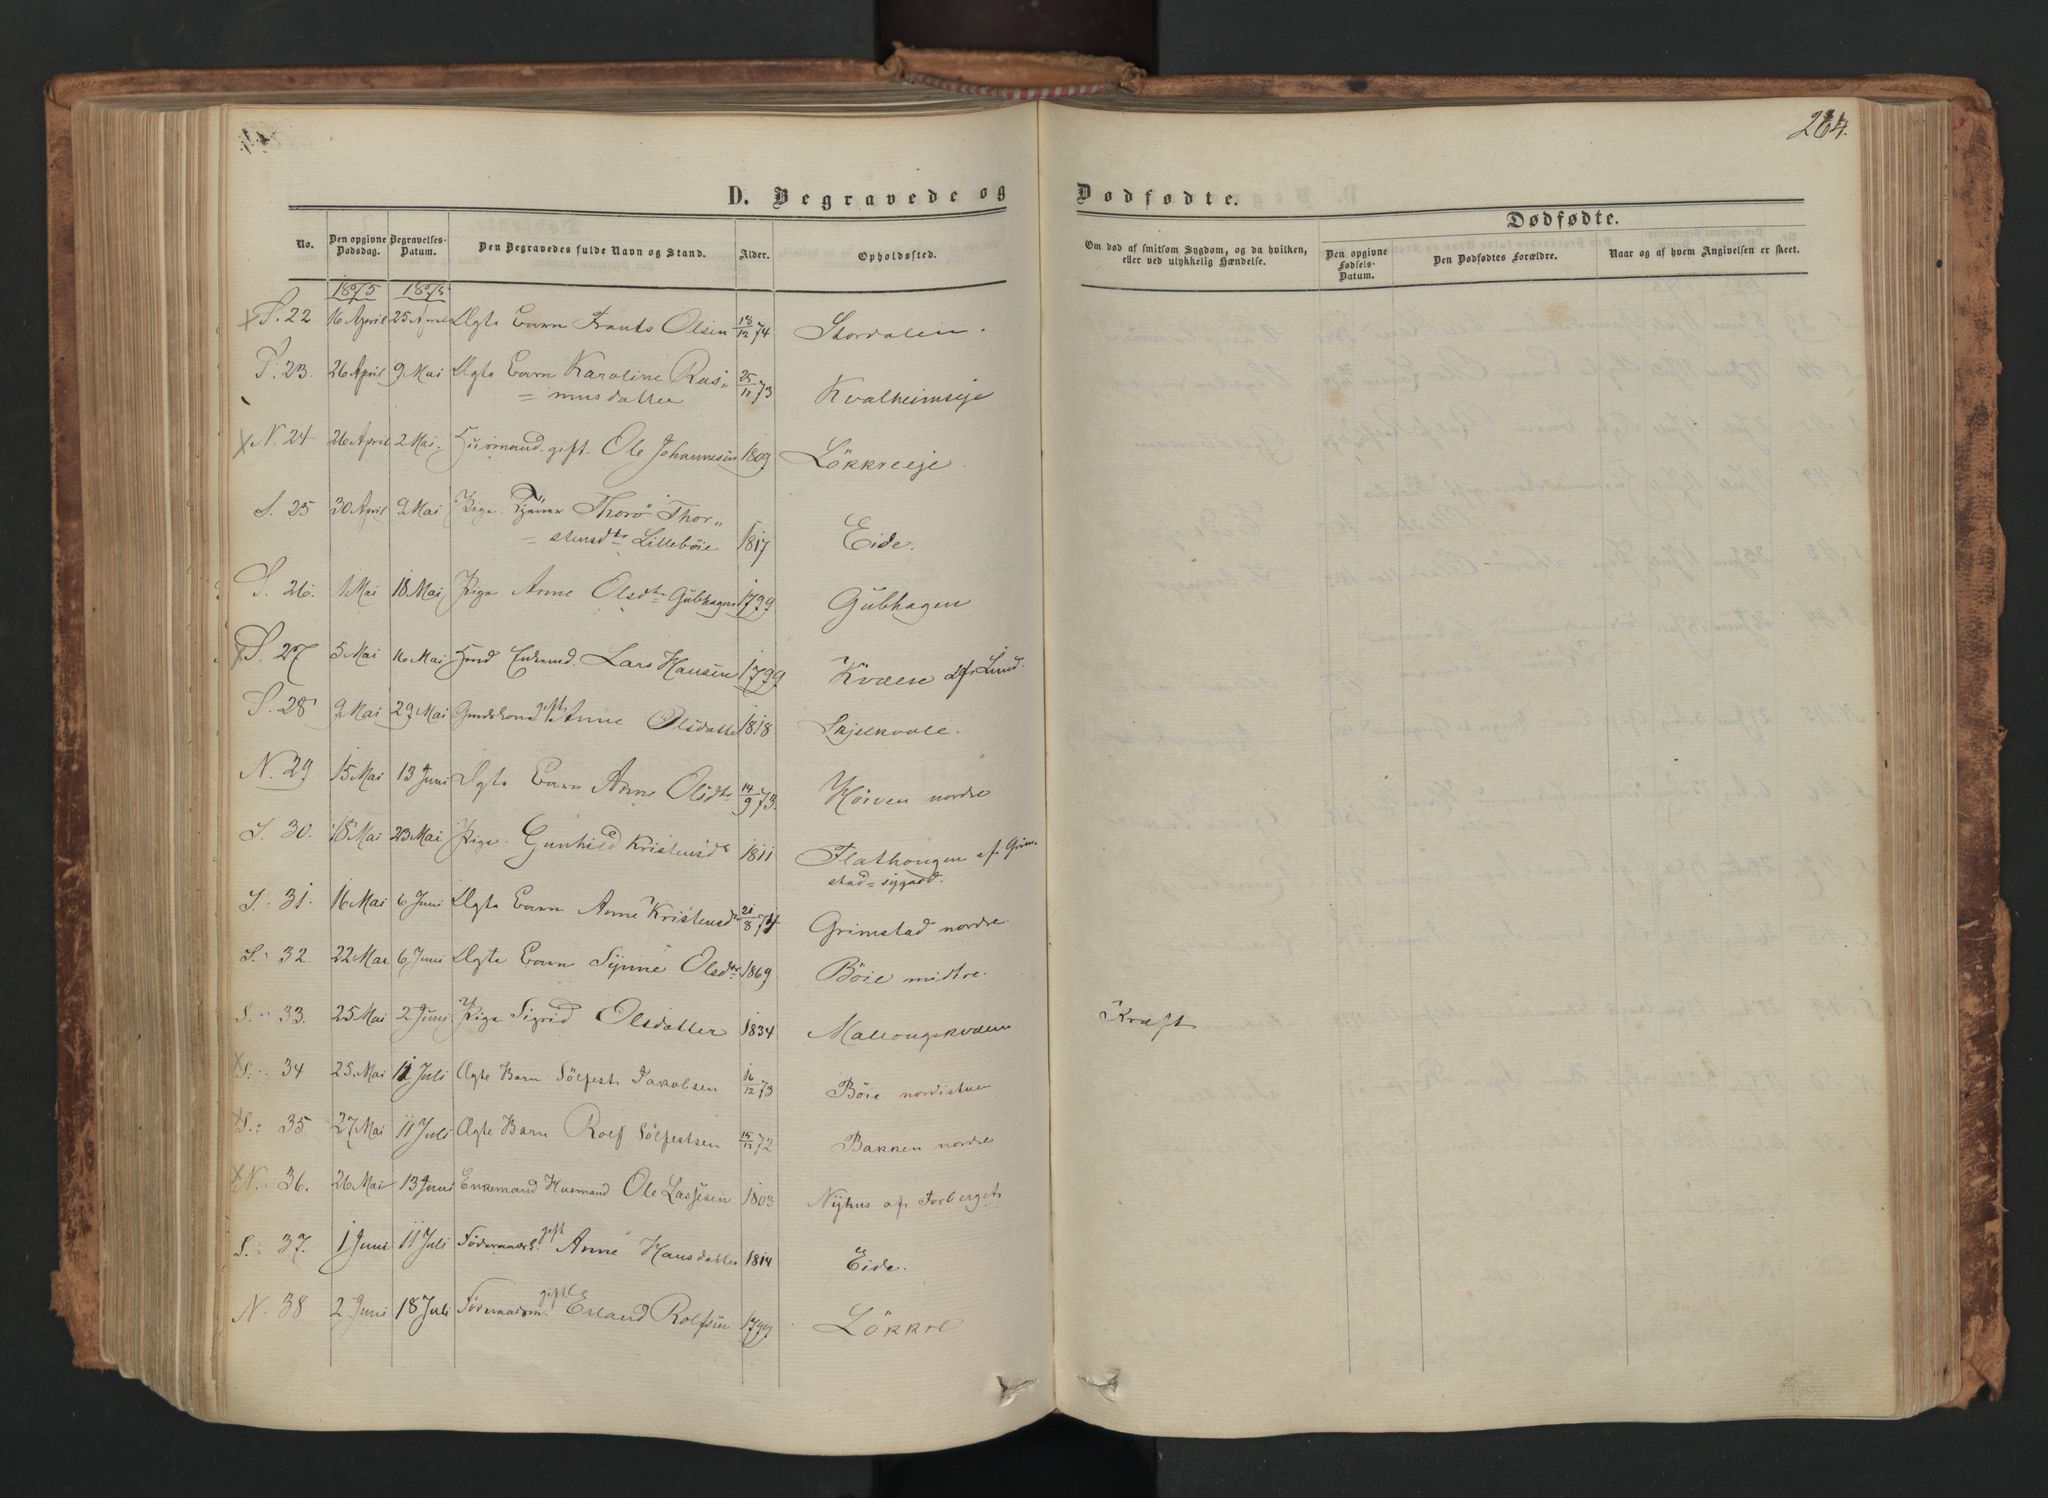 264.
D. Begravede og Dødfødte.
Dødfødte.
No.
Den opgivne Dødsdag.
Begravelses-Datum.
Den Begravedes fulde Navn og Stand.
Alder.
Opholdssted.
Om død af smitsom Sygdom, og da hvilken, eller ved ulykkelig Hændelse.
Den opgivne Fødsels-Datum.
Den Dødfødtes Forældre.
Naar og af hvem Angivelsen er skeet.
1875 1875
S. 22 16 April 25 April Ægte Barn Frants Olsen 18/12 74 Stordalen.
S. 23. 26 April 9 Mai Ægte Barn Karoline Ras„
= musdatter 25/11 73 Kvalheimseje
N. 24 26 April 2 Mai. Huusmand gift. Ole Johannesen 1809 Lökkreeje
S. 25 30 April 9 Mai Pige. Tjener Thorö Thor„
= stensdtr Lillebøie 1817 Eide.
S. 26. 1 Mai 18 Mai Pige Anne Olsdtr Gubhagen 1799 Gubhagen
S. 27 5 Mai 16 Mai Enkemd. Lars Hansen 1799 Kvæve af Lund.
S. 28 9 Mai 29 Mai gift Anne Olsdatter 1818 Skjelkvale.
N. 29 15 Mai 13 Juni Ægte Barn Anne Olsdtr 14/9 73. Høiven nordre
S. 30. 18 Mai 23 Mai Pige. Gunhild Kristensd 1811 Flathougen af Grim-
stad=sygard.
S. 31. 16 Mai 6 Juni Ægte Barn Anne Kristensdr 21/8 74 Grimstad nordre
S. 32. 22 Mai 6 Juni Ægte Barn Synne Olsdtr 1869 Böie midtre.
S. 33. 25 Mai 2 Juni Pige Sigrid Olsdatter 1834 Kræft
S. 34 25 Mai 11 Juli Ægte Barn Sölfest Jakobsen 16/12 73 Böie nordistuen
S. 35 27 Mai 11 Juli Ægte Barn Rolf Sölfestsen 15/12 72 Bakken nordre
N. 36. 26 Mai 13 Juni Enkemand Husmand Ole Lassesen 1803 Nyhus af Forberget
S. 37. 1 Juni 11 Juli gift Anne Hansdatter 1814 Eide.
N. 38 2 Juni 18 Juli Födernadsm. gift Erland Rolfsen 1799 Lökkre